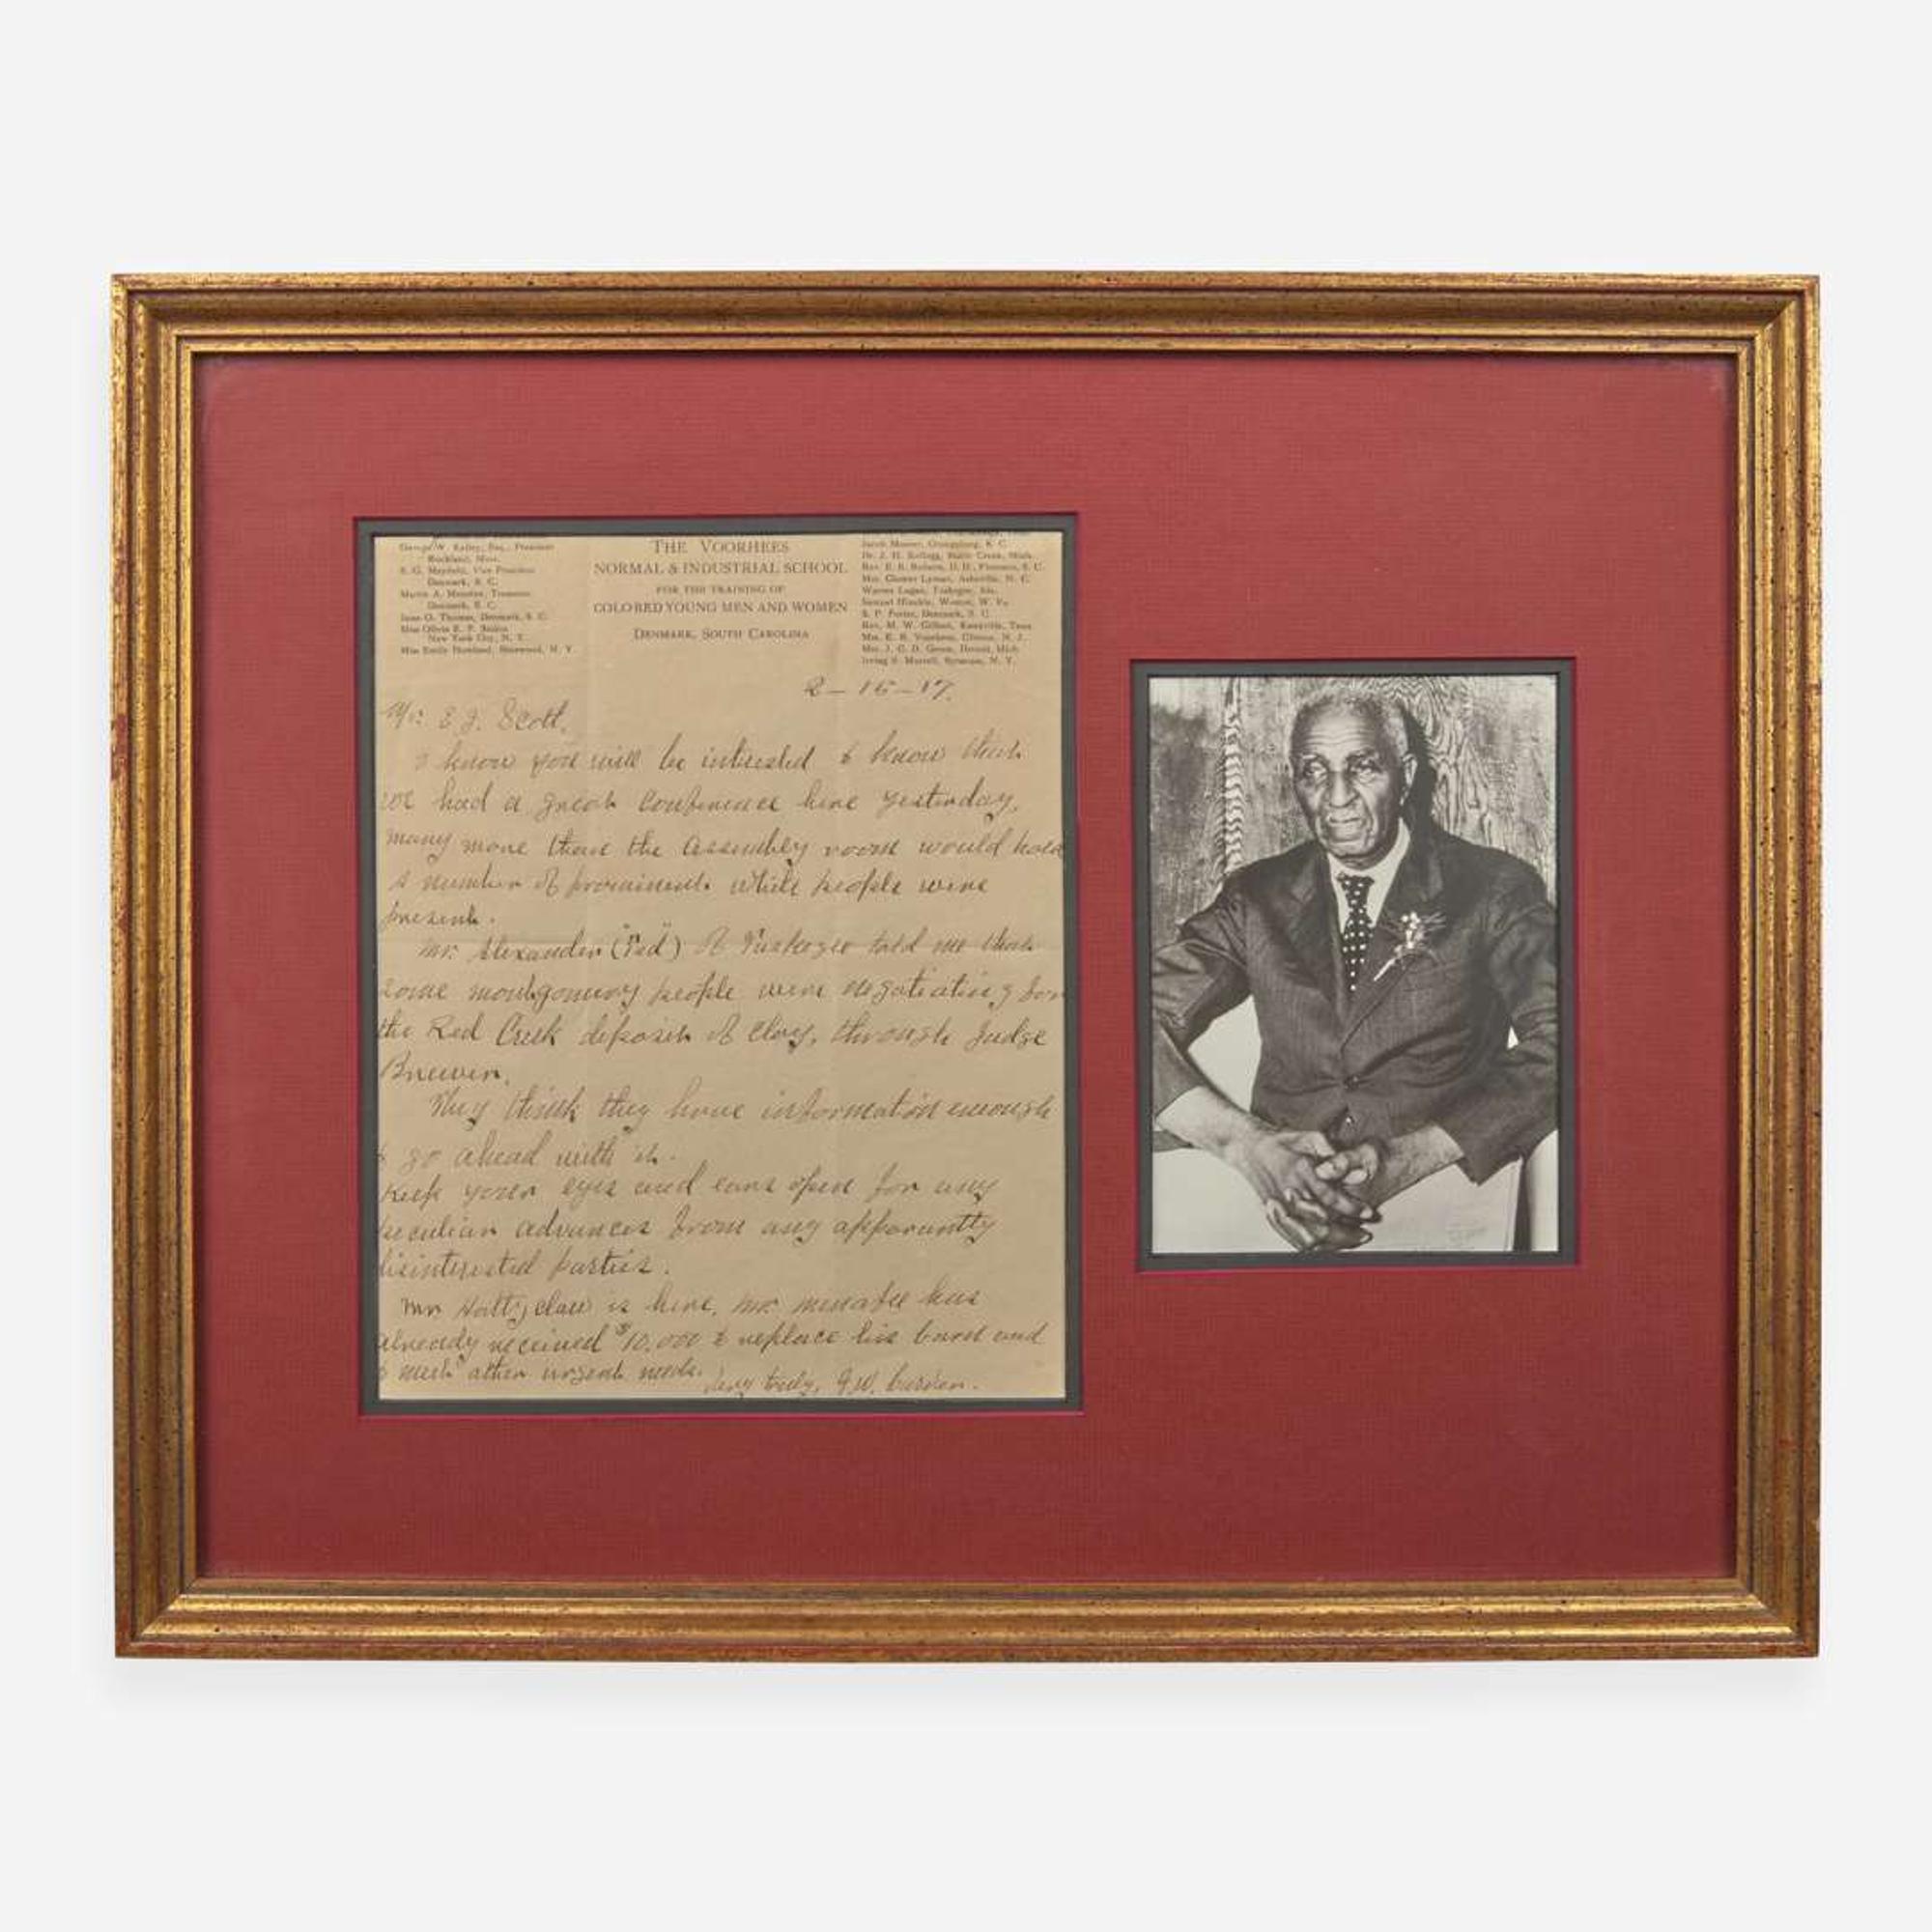 George W. Kelley, Esq., President
Rockland, Mass.
S. G. Mayfield, Vice President
Denmark, S. C.
Martin A. Menafee, Treasurer
Denmark, S. C.
Isaac O. Thomas, Denmark, S. C.
Miss Olivia E. P. Stokes
New York City, N. Y.
Miss Emily Howland, Sherwood, N. Y.
THE VOORHEES
NORMAL & INDUSTRIAL SCHOOL
FOR THE TRAINING OF
COLORED YOUNG MEN AND WOMEN
DENMARK, SOUTH CAROLINA
Jacob Moorer, Orangeburg, S. C.
Dr. J. H. Kellogg, Battle Creek, Mich.
Rev. E. R. Roberts, D. D., Florence, S. C.
Mrs. Chester Lyman, Asheville, N. C.
Warren Logan, Tuskegee, Ala.
Samuel Weston, W. Va.
S. P. Porter, Denmark, S. C.
Rev. M. W. Gilbert, Knoxville, Tenn.
Mrs. E. R. Voorhees, Clinton, N. J.
Mrs. J. C. D. Green, Detroit, Mich.
Irving S. Merrell, Syracuse, N. Y.
2-15-17.
Mr. E. J. Scott,
I know you will be intirested to know that
we had a great conference here yesterday,
many more than the assembly room would hold
A number of prominent white people were
present.
Mr. Alexander ("Ted") of Tuskegee told me that
some montgomery people were negotiating for
the Red Creek deposit of clay, through Judge
Brewer.
They think they have information enough
to go ahead with it.
Keep your eyes and ears open for any
peculiar advances from any apparantly
disinterested parties.
Mr. Holtzclaw is here, Mr. menafee has
already received $10,000 to replace his barn and
to meet other urgent needs.
Very truly, G. W. Carver.